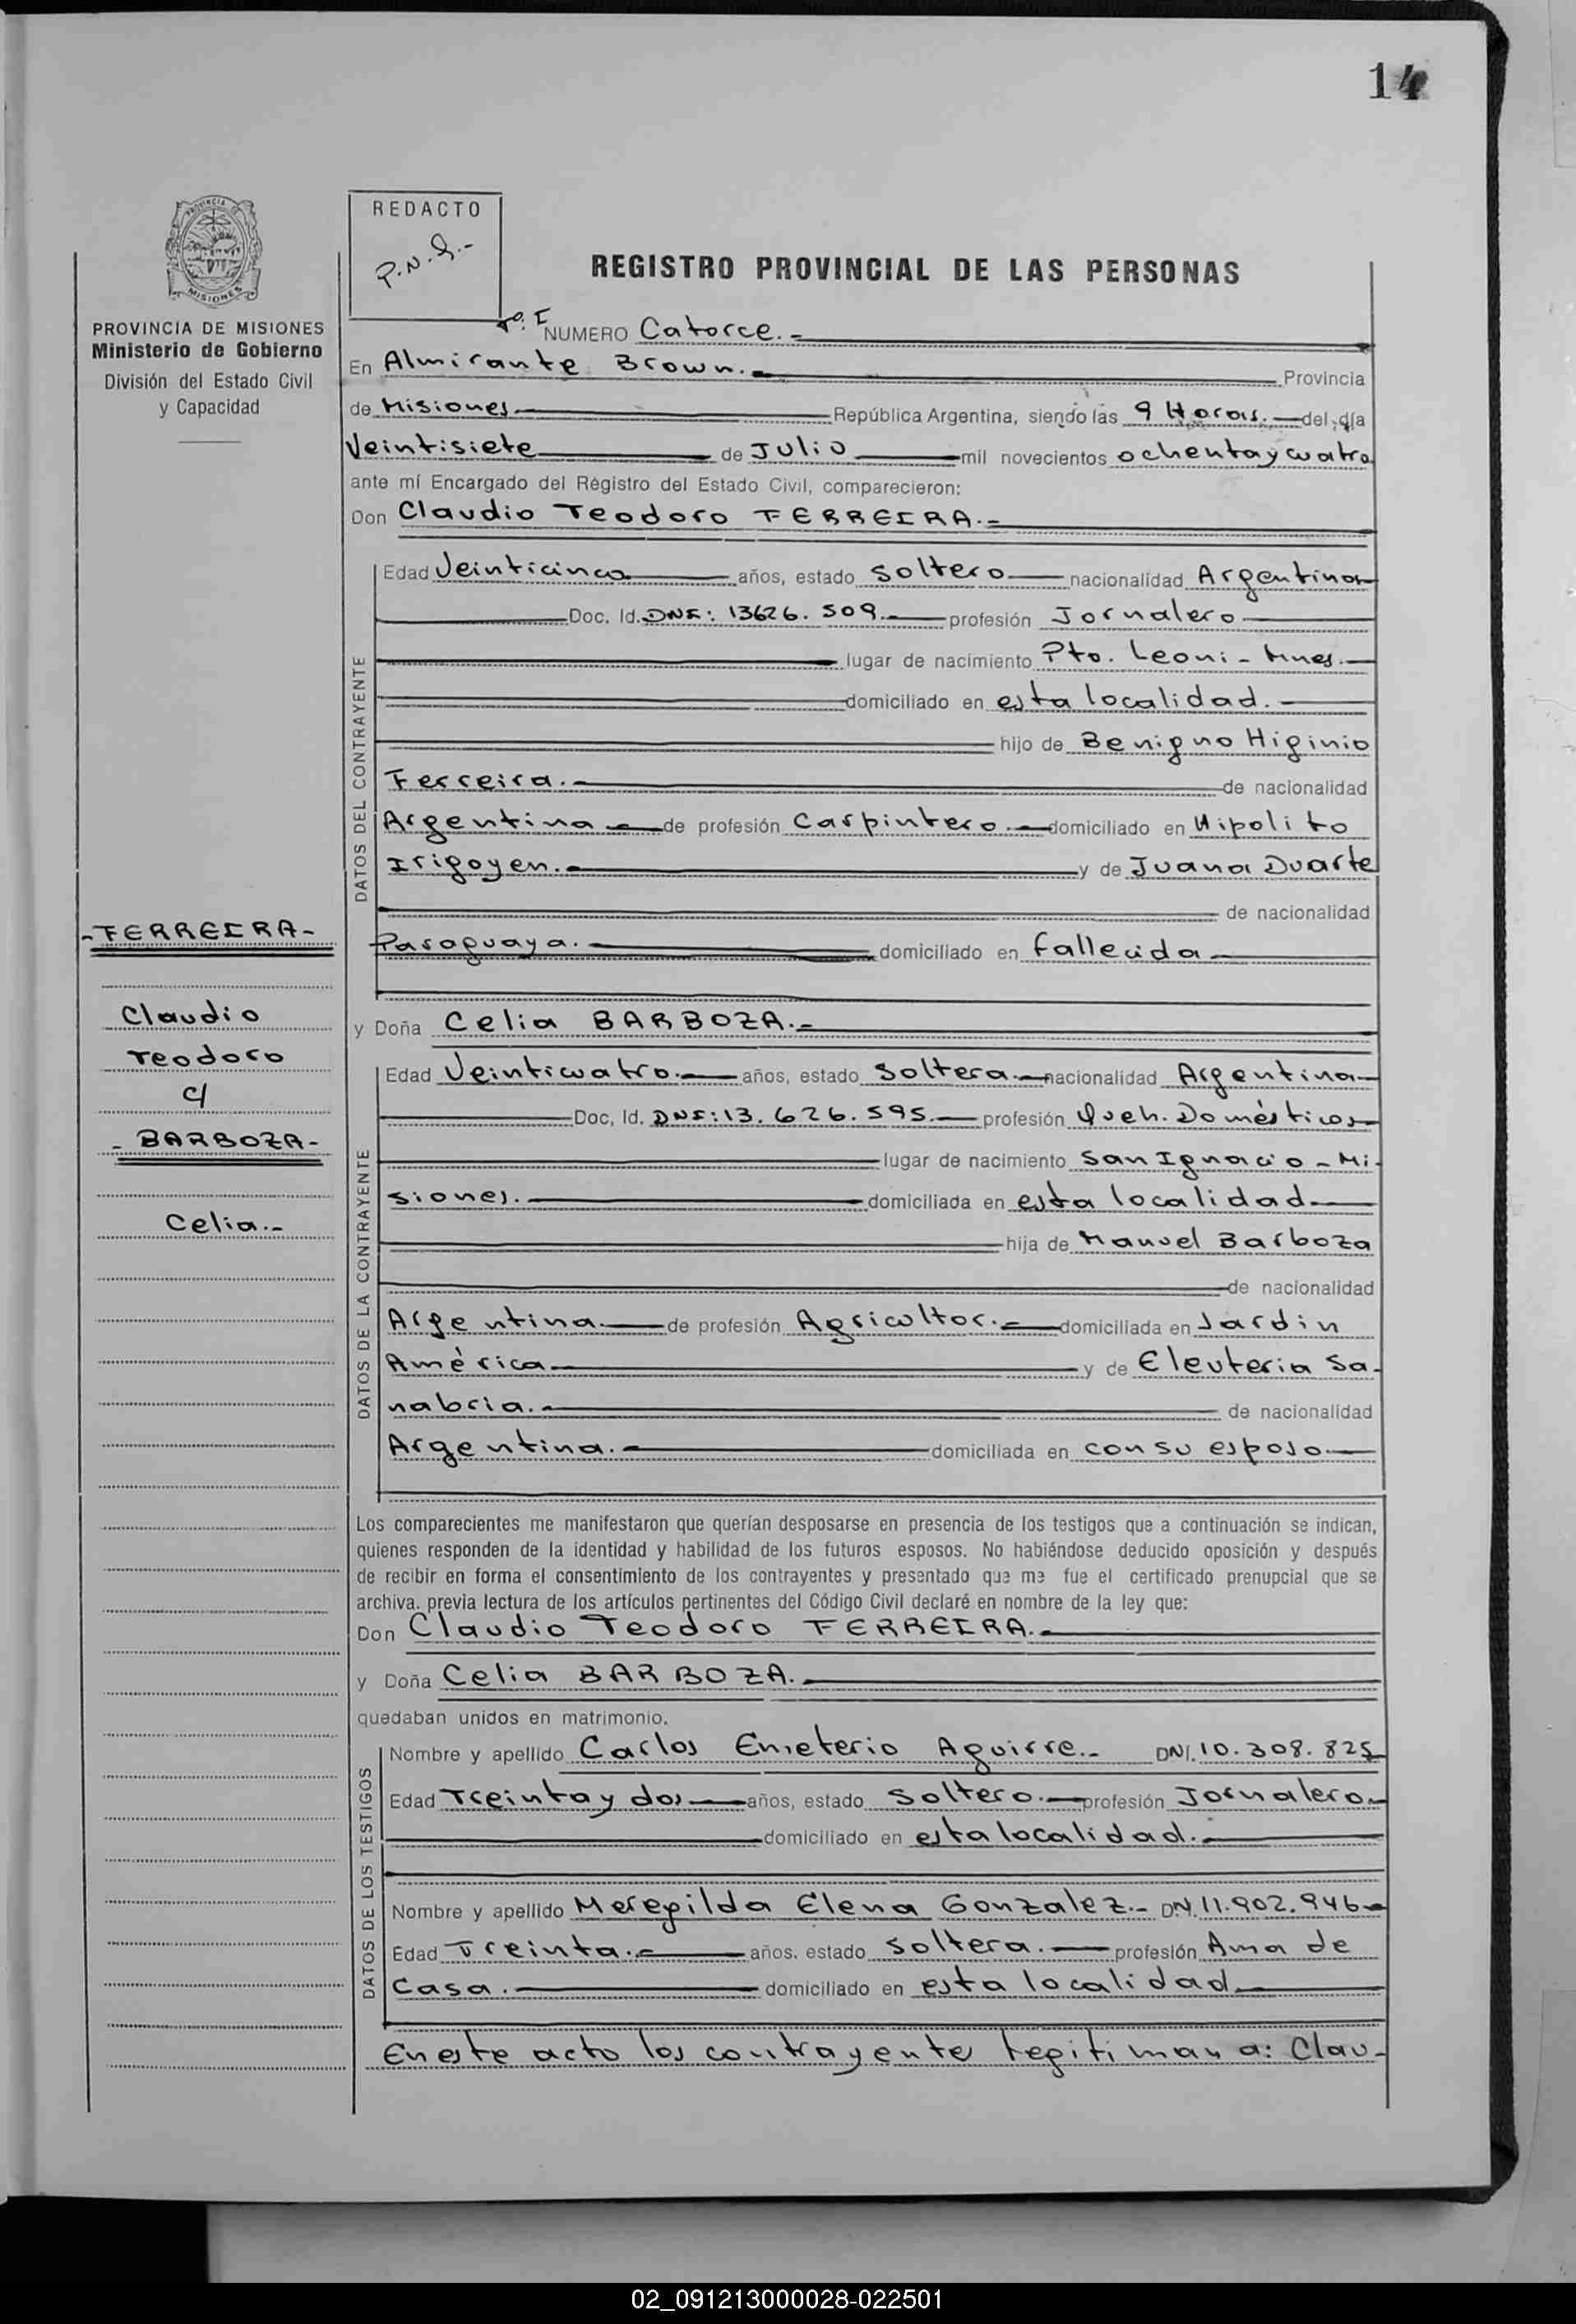 14
PROVINCIA DE
MISIONES
PROVINCIA DE MISIONES
Ministerio de Gobierno
División del Estado Civil
y Capacidad
REDACTO
P.N.G.-
REGISTRO PROVINCIAL DE LAS PERSONAS
Tº. I NUMERO Catorce.-
En Almirante Brown. Provincia
de Misiones República Argentina, siendo las 9 Horas. del día
Veintisiete de Julio mil novecientos ochenta y cuatro
ante mí Encargado del Registro del Estado Civil, comparecieron:
Don Claudio Teodoro FERREIRA.-
DATOS DEL CONTRAYENTE
Edad Veinticinco años, estado soltero nacionalidad Argentina
Doc. Id. DNI: 13626.509.- profesión Jornalero
lugar de nacimiento Pto. Leoni - Mnes.
domiciliado en esta localidad.
hijo de Benigno Higinio
Ferreira.- de nacionalidad
Argentina de profesión Carpintero. domiciliado en Hipolito
Irigoyen. y de Juana Duarte
de nacionalidad
Paraguaya. domiciliado en fallecida
y Doña Celia BARBOZA.-
DATOS DE LA CONTRAYENTE
Edad Veinticuatro. años, estado soltera. nacionalidad Argentina
Doc, Id. DNI: 13.626.595. profesión Queh. Domésticos
lugar de nacimiento San Ignacio - Mi-
siones. domiciliada en esta localidad
hija de Manuel Barboza
de nacionalidad
Argentina. de profesión Agricultor.- domiciliada en Jardin
América y de Eleuteria Sa-
nabria. de nacionalidad
Argentina. domiciliada en con su esposo
Los comparecientes me manifestaron que querían desposarse en presencia de los testigos que a continuación se indican,
quienes responden de la identidad y habilidad de los futuros esposos. No habiéndose deducido oposición y después
de recibir en forma el consentimiento de los contrayentes y presentado que me fue el certificado prenupcial que se
archiva. previa lectura de los artículos pertinentes del Código Civil declaré en nombre de la ley que:
Don Claudio Teodoro FERREIRA.
y Doña Celia BARBOZA.
quedaban unidos en matrimonio.
DATOS DE LOS TESTIGOS
Nombre y apellido Carlos Emeterio Aguirre.- DNI. 10.308.825
Edad Treinta y dos años, estado soltero. profesión Jornalero
domiciliado en esta localidad.
Nombre y apellido Meregilda Elena Gonzalez.- DNI. 11.902.946
Edad Treinta. años. estado soltera. profesión Ama de
Casa. domiciliado en esta localidad
En este acto los contrayentes legitiman a: Clau-
-FERREIRA-
Claudio
Teodoro
c/
-BARBOZA-
Celia.-
02_091213000028-022501